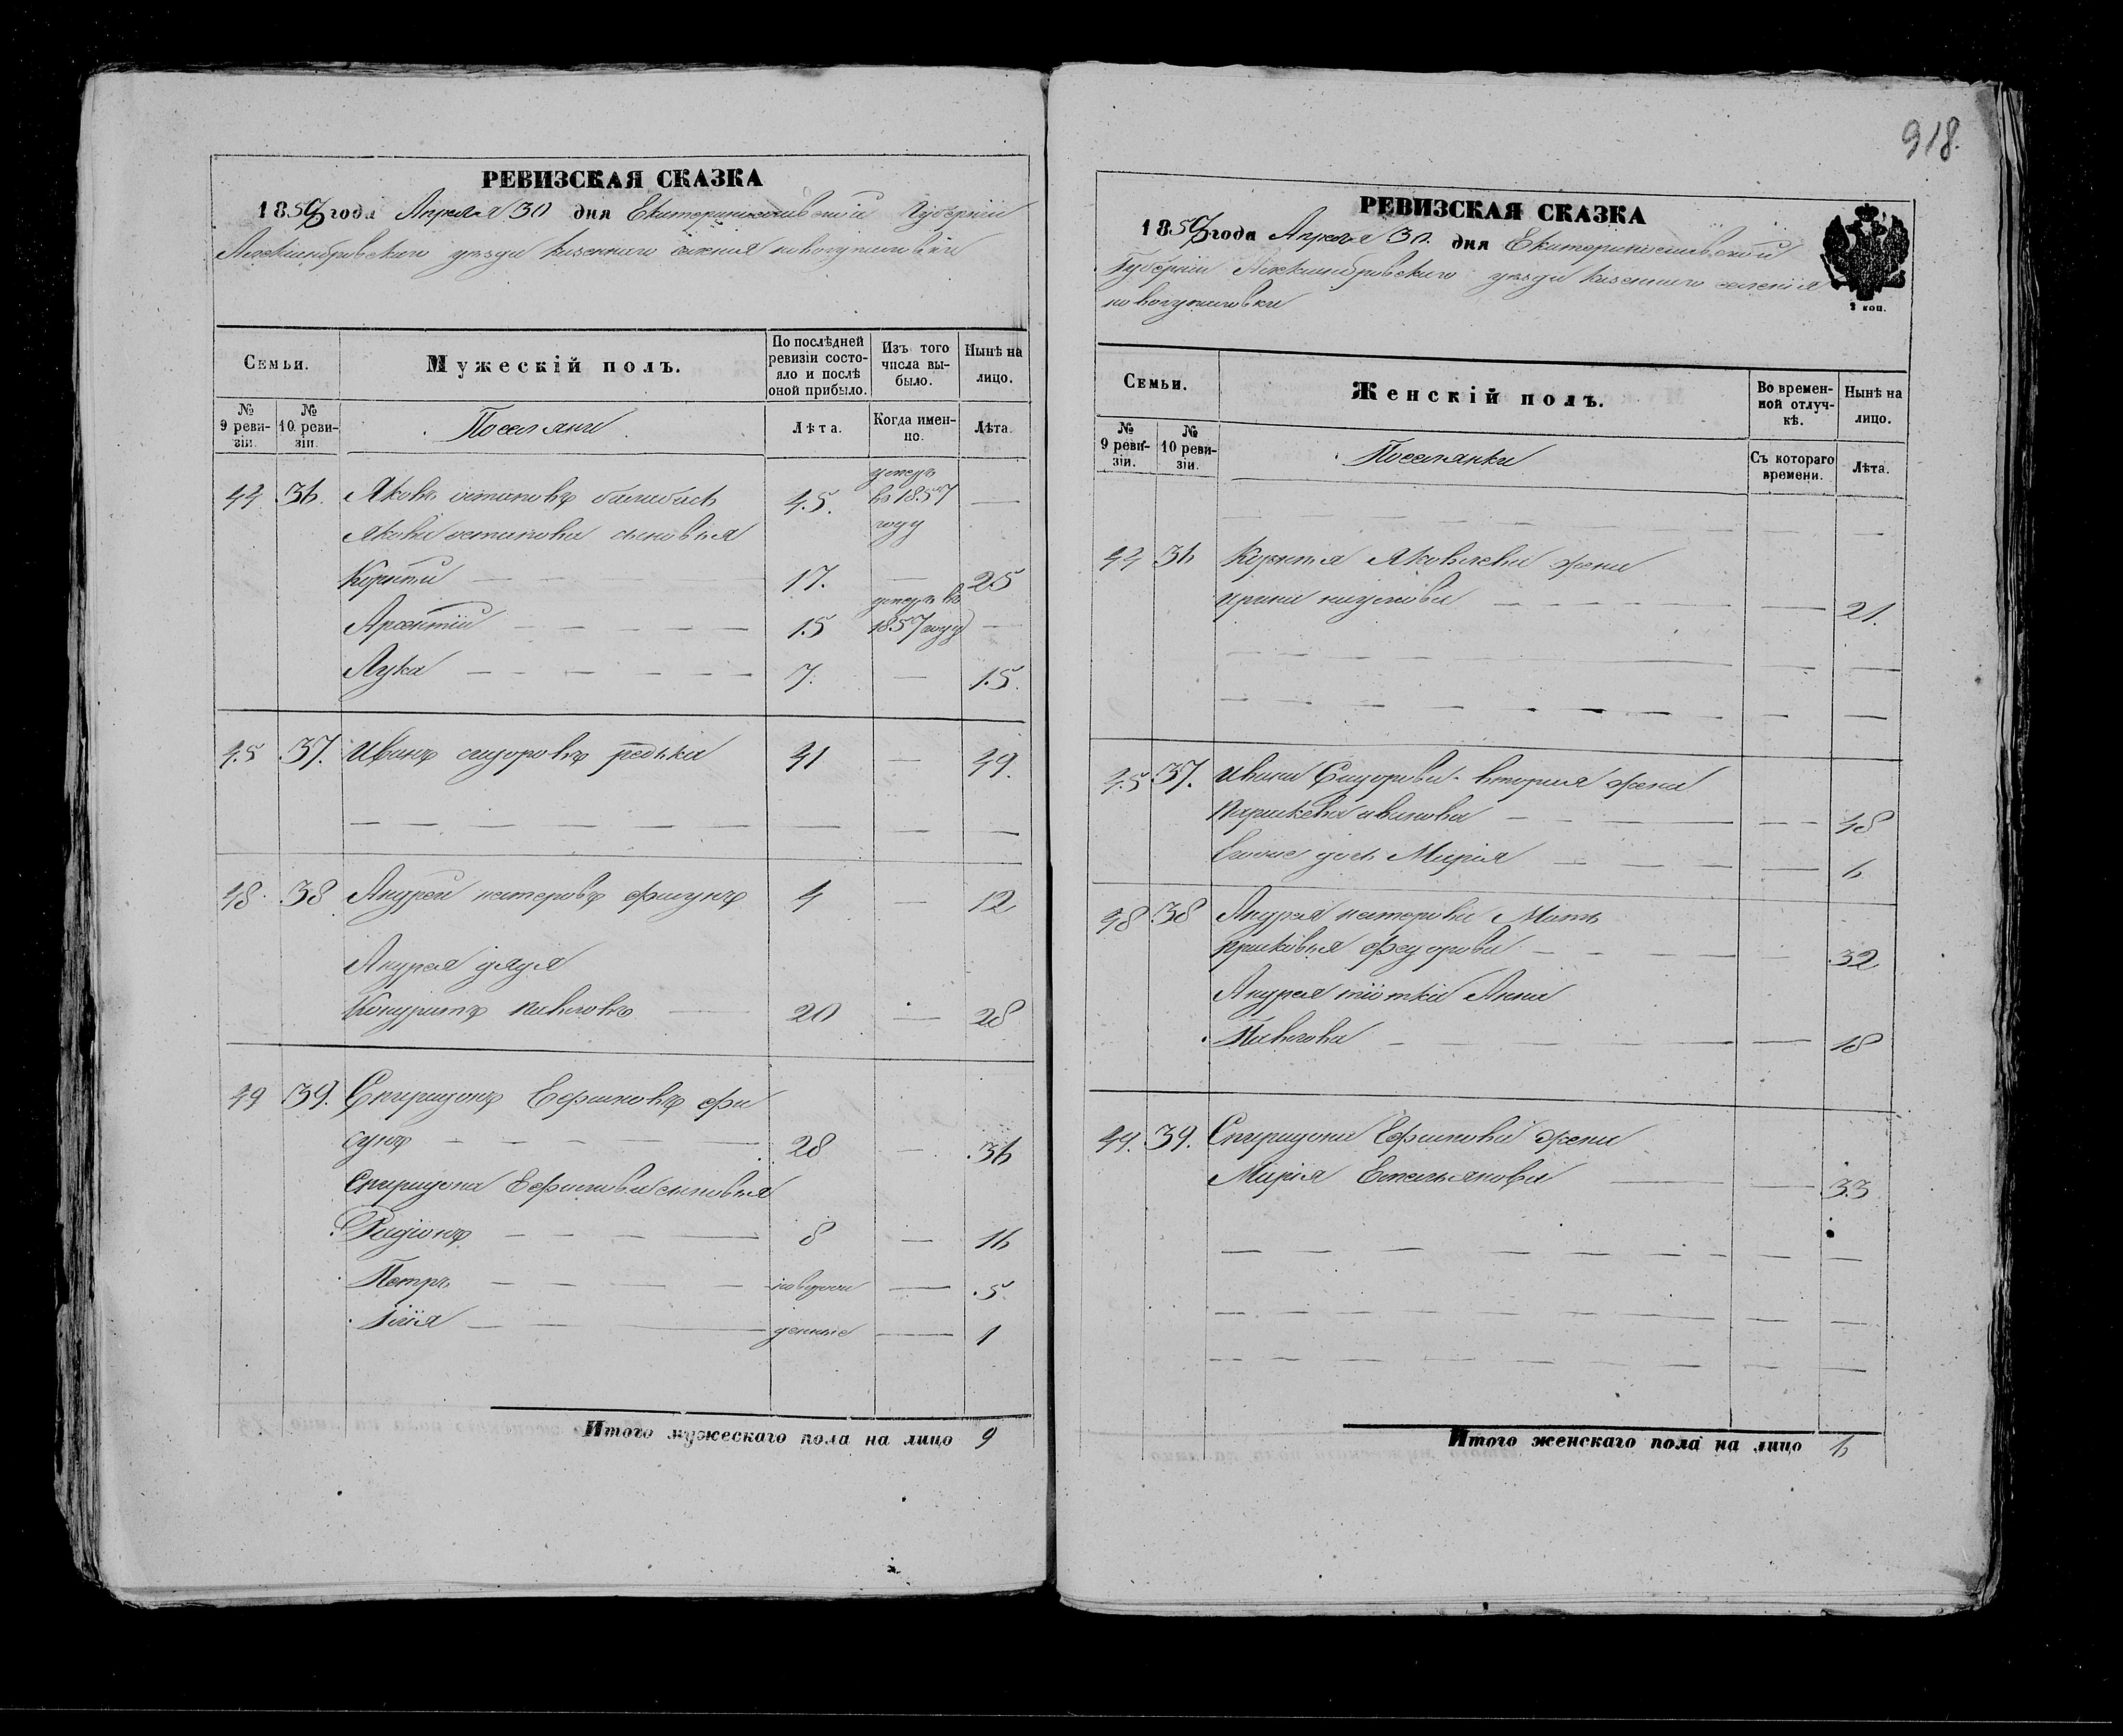 918.
РЕВИЗСКАЯ СКАЗКА
1858 года Апреля 30 дня Екатеринославской Губерніи
Александровского уезда казенного селения новогупаловки
Семьи.
Мужескій полъ.
По послѣдней ревизіи состояло и послѣ оной прибыло.
Изъ того числа выбыло.
Нынѣ на лицо.
№ 9 ревизіи.
№ 10 ревизіи.
Поселяне
Лѣта.
Когда именно.
Лѣта.
44 36. Яковъ остаповъ 45. умеръ въ 1857 году —
Якова остапова сыновья
Корнѣй — — — 17. — 25
Арсентій — — — 15 умеръ въ 1857 году —
Лука — — — 7. — 15.
45 37. Иванъ сидоровъ редька 41 — 49.
48 38 Андрей нестеровъ фисунъ 4 — 12
Андрея дядя
Кондратъ павловъ — 20 — 28
49 39. Спиридонъ Ефимовъ фи
сунъ — — — 28 — 36
Спиридона Ефимова сыновья
Радіонъ — — — 8 — 16
Петръ — — — новорож — 5
Илія — — — денные — 1
Итого мужескаго пола на лицо 9
РЕВИЗСКАЯ СКАЗКА
1858 года Апреля 30. дня Екатеринославской
Губерніи Александровского уезда казенного селенія
новогупаловки
2 коп.
Семьи.
Женскій полъ.
Во временной отлучкѣ.
Нынѣ на лицо.
№ 9 ревизіи.
№ 10 ревизіи.
Поселянки
Съ котораго времени.
Лѣта.
44 36 Корнѣя Яковлева жена
ирина наумова — — — 21.
45 37. Ивана Сидорова вторая жена
Параскевия иванова — — — 48
Ево дочь Марія — — — 6
48 38 Андрея нестерова Мать
прасковья федорова — — — 32
Андрея тіотка Анна
Павлова — — — 18
49. 39. Спиридона Ефимова жена
Марія Емельянова — — 33
Итого женскаго пола на лицо 6